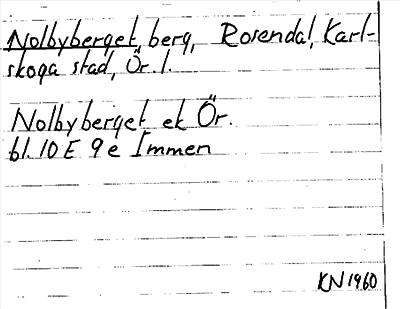 Nolbyberget, berg, Rosendal, Karl-
skoga stad, Ör. l.
Nolbyberget ek Ör.
bl. 10 E 9 e Immen
KN 1960